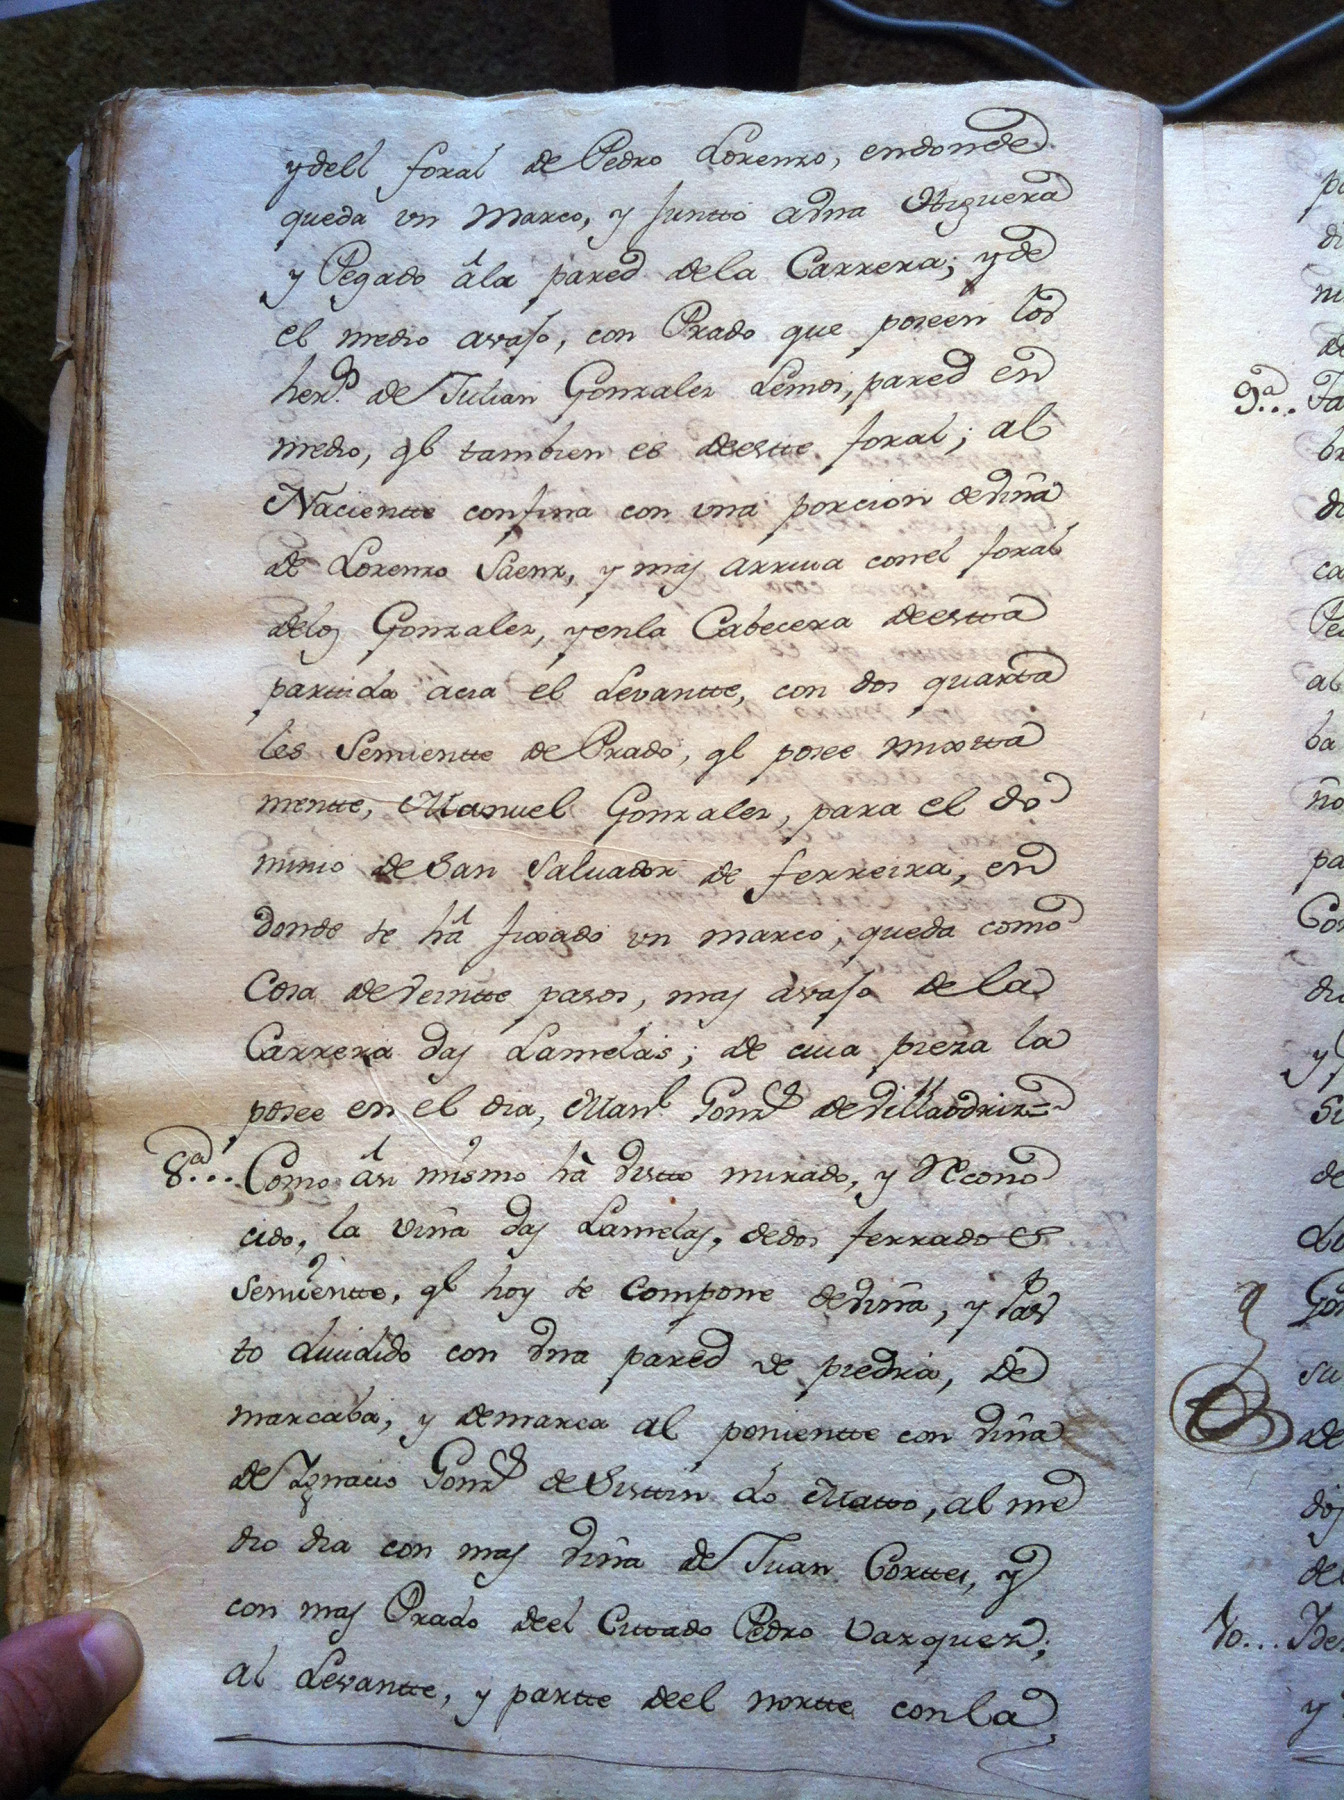 y dell foral de Pedro Lorenzo, endonde
queda vn Marco, y Juntto a vna Higuera
y Pegado â la pared de la Carrera; y de
el medio avajo, con Prado que poseen los
herd.s de Julian Gonzalez Lemos, pared en
medio, qe tambien es deestte foral; al
Nacientte confina con vna porcion de viña
de Lorenzo Saenz, y mas arriua con el foral
delos Gonzalez, y en la Cabecera deestta
parttida acia el Levantte, con dos quarta
les Semientte de Prado, qe posee mixtta
mentte, Manuel Gonzalez, para el do
minio de San Saluador de ferreira, en
donde se há fixado vn marco, queda como
Cosa de veintte pasos, mas avajo de la
Carrera das Lamelas; de cuia pieza la
posee en el dia, Manl Gonz.z de Villaodriz=
8.a... Como ási mismo há vistto mirado, y Recono
cido, la viña das Lamelas, de dos ferrados
semientte, qe hoy se compone de viña, y Pas
to diuidido con vna pared de piedra, de
marcaba, y demarca al ponientte con viña
de Ygnacio Gonz.z de Sisttin do Matto, al me
dio dia con mas viña de Juan Corttes, y
con mas Prado deel Cittado Pedro Vazquez;
al Levantte, y partte deel nortte con la
9.a...
10...